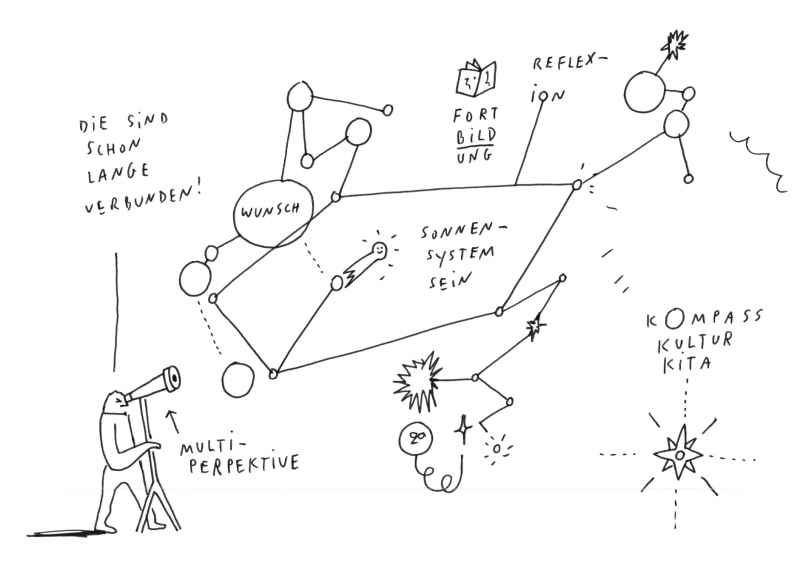 DIE SIND
SCHON
LANGE
VERBUNDEN!
WUNSCH
FORT
BILD
UNG
REFLEX-
ION
SONNEN-
SYSTEM
SEIN
KOMPASS
KULTUR
KITA
MULTI-
PERPEKTIVE